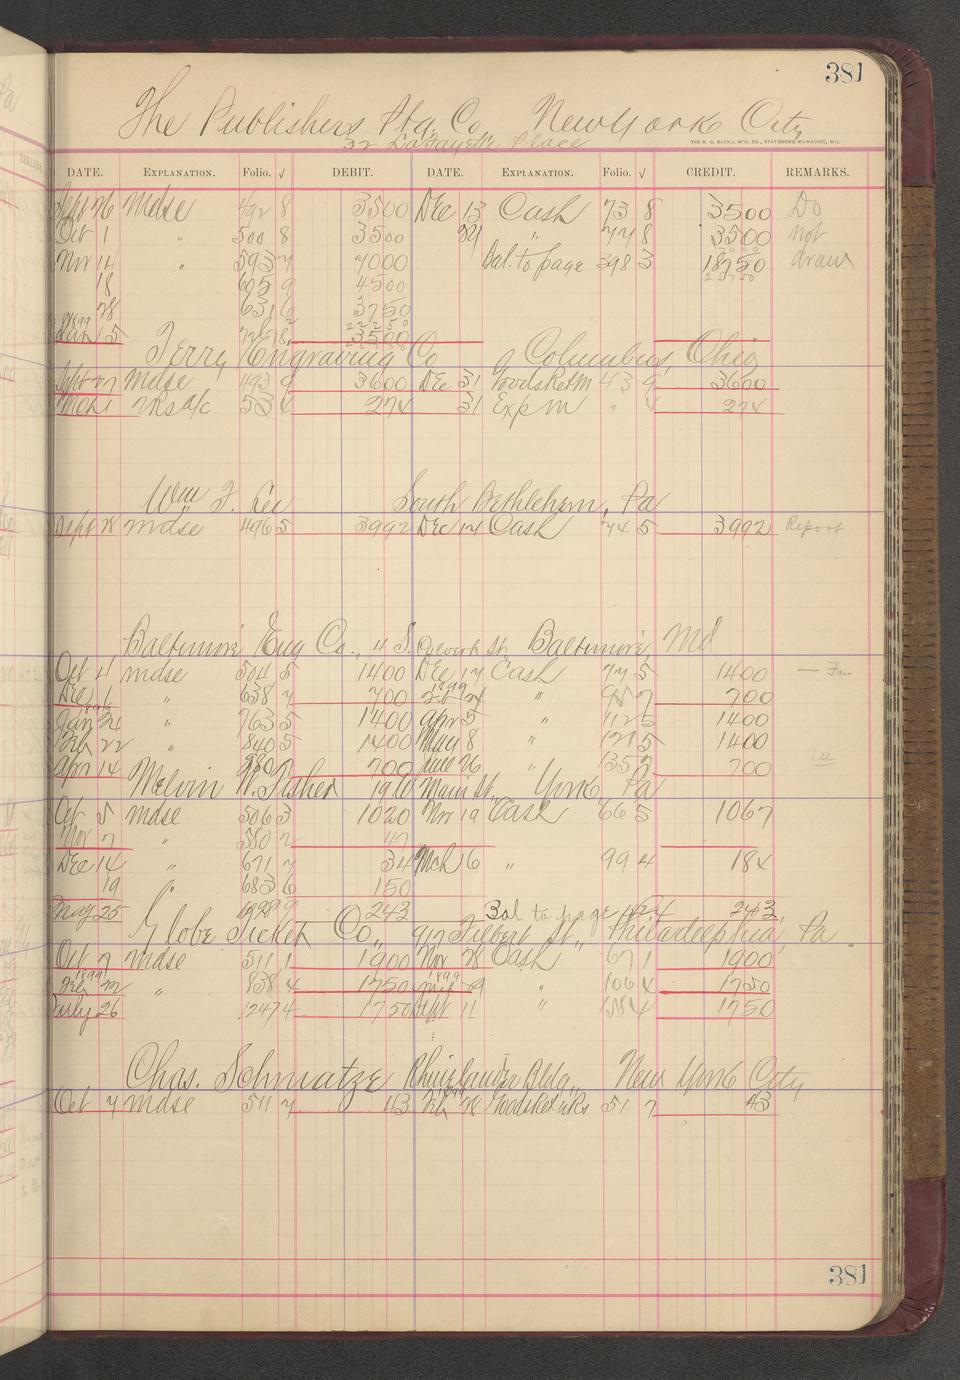 381
The Publishers Ptg. Co New York City
32 Lafayette Place
THE H. G. RAZALL MFG. CO., STATIONERS, MILWAUKEE, WIS.
DATE. EXPLANATION. Folio. √ DEBIT. DATE. EXPLANATION. Folio. √ CREDIT. REMARKS.
26 mdse 492 8 3500 Dec 13 Cash 73 8 3500 Do
Oct 1 " 500 8 3500 24 " 77 8 3500 not
Nov 14 " 593 7 7000 Bal. to page 398 3 18750 draw
18 605 9 4500 25750
28 631 6 3750
1899 22250
Jan 5 726 8 3500
Terry Engraving Co Columbus, Ohio
Sept 27 mdse 493 9 3600 Dec 31 Goods Retm 43 9 3600
53 4 274 31 Exp m " 4 274
Wm F. South Bethlehem, Pa
Sept 28 mdse 496 5 3992 Dec 14 Cash 74 5 3992 Report
Baltimore Eng Co., 4 S. St. Baltimore, Md
Oct 4 mdse 504 5 1400 Dec 17 Cash 77 5 1400
Dec 1 " 638 7 700 1899 Feb 24 " 95 7 700
Jan 24 " 763 5 1400 Apr 5 " 112 5 1400
Feb 22 " 840 5 1400 May 8 " 121 5 1400
Apr 14 980 7 700 June 26 " 135 7 700
Melvin W. Fisher Main St. York Pa
Oct 5 mdse 506 3 1020 Nov 19 Cash 66 5 1067
Nov 7 " 580 2 47
Dec 14 " 671 7 34 Mch 6 " 99 4 184
19 " 683 6 150
May 25 1098 9 243 Bal. to page 1424 243
Globe Ticket Co., 917 Filbert St., Philadelphia, Pa.
Oct 7 mdse 511 1 1900 Nov 28 Cash 67 1 1900
1899 1899
Feb 22 " 838 4 1750 " 106 4 1750
July 26 1247 4 1750 Sept 11 " 158 4 1750
Chas. Schwatze Rhinelander Bldg., New York City
1899
Oct 7 mdse 511 7 43 Feb 28 Goods Ret 51 7 43
381